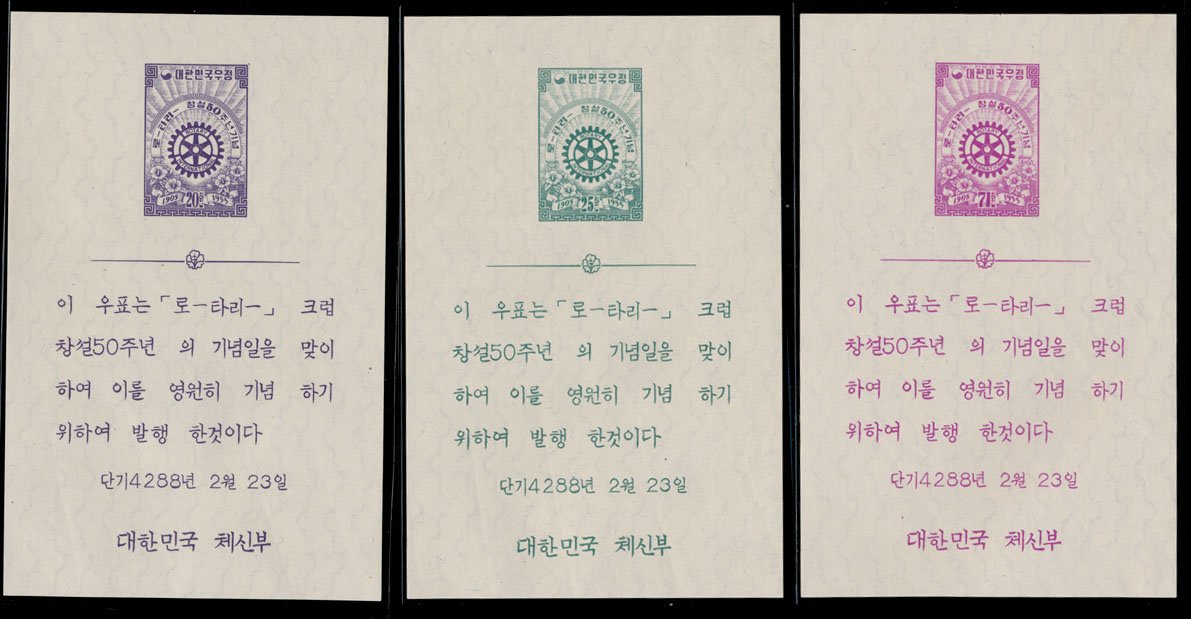 대한민국우정
로ー타리ー 창설50주년기념
ROTARY
INTERNATIONAL
1905 20환 1955
이 우표는「로ー타리ー」 크럽
창설50주년 의 기념일을 맞이
하여 이를 영원히 기념 하기
위하여 발행 한것이다
단기4288년 2월 23일
대한민국 체신부
대한민국우정
로ー타리ー 창설50주년기념
ROTARY
INTERNATIONAL
1905 25환 1955
이 우표는「로ー타리ー」 크럽
창설50주년 의 기념일을 맞이
하여 이를 영원히 기념 하기
위하여 발행 한것이다
단기4288년 2월 23일
대한민국 체신부
대한민국우정
로ー타리ー 창설50주년기념
ROTARY
INTERNATIONAL
1905 71환 1955
이 우표는「로ー타리ー」 크럽
창설50주년 의 기념일을 맞이
하여 이를 영원히 기념 하기
위하여 발행 한것이다
단기4288년 2월 23일
대한민국 체신부